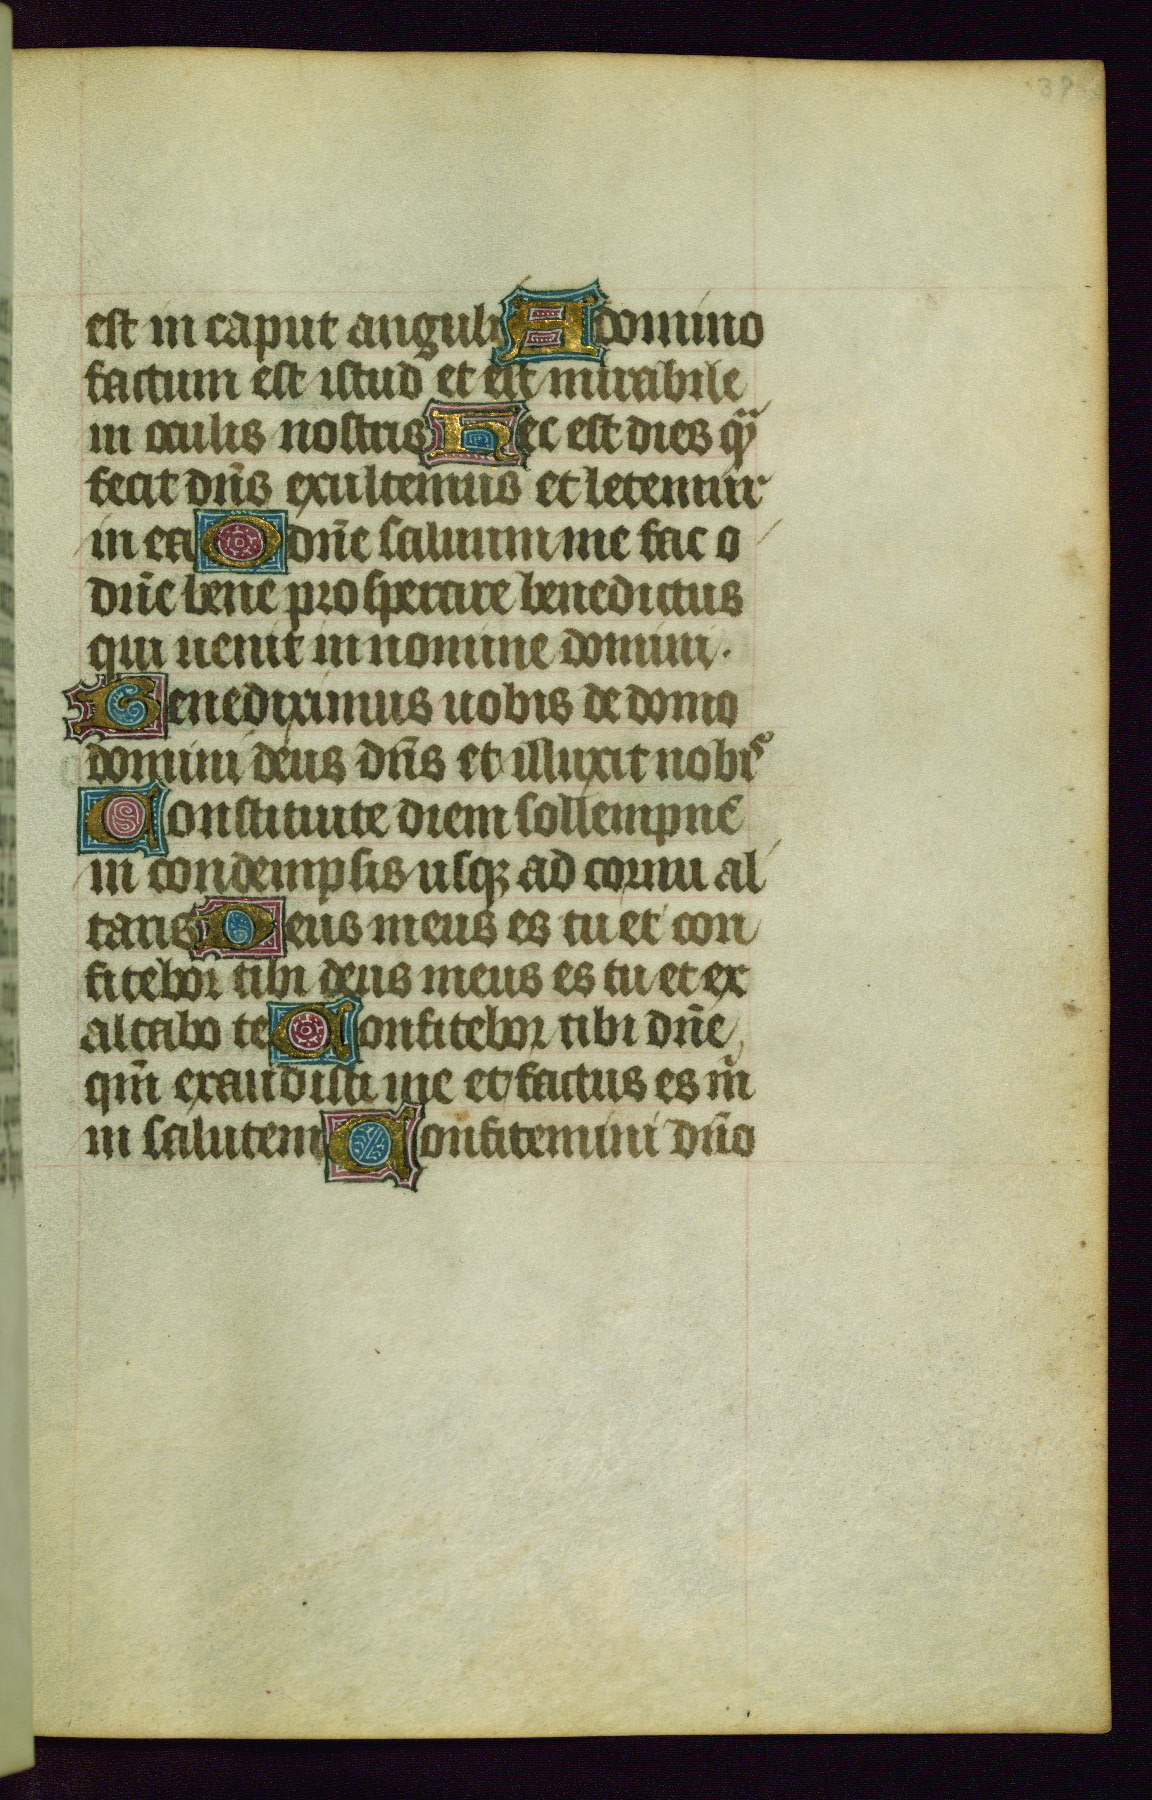 39
est in caput anguli A domino
factum est istud et est mirabile
in oculis nostris Hec est dies quā
fecit dn̄s exultemus et letemur
in ea O dn̄e saluum me fac o
dn̄e bene prosperare benedictus
qui uenit in nomine domini.
Benediximus uobis de domo
domini deus dn̄s et illuxit nobis
Constituite diem sollempnē
in condempsis usqꝫ ad cornu al
taris Deus meus es tu et con
fitebor tibi deus meus es tu et ex
altabo te Confitebor tibi dn̄e
qm̄ exaudisti me et factus es m̄
in salutem Confitemini dn̄o